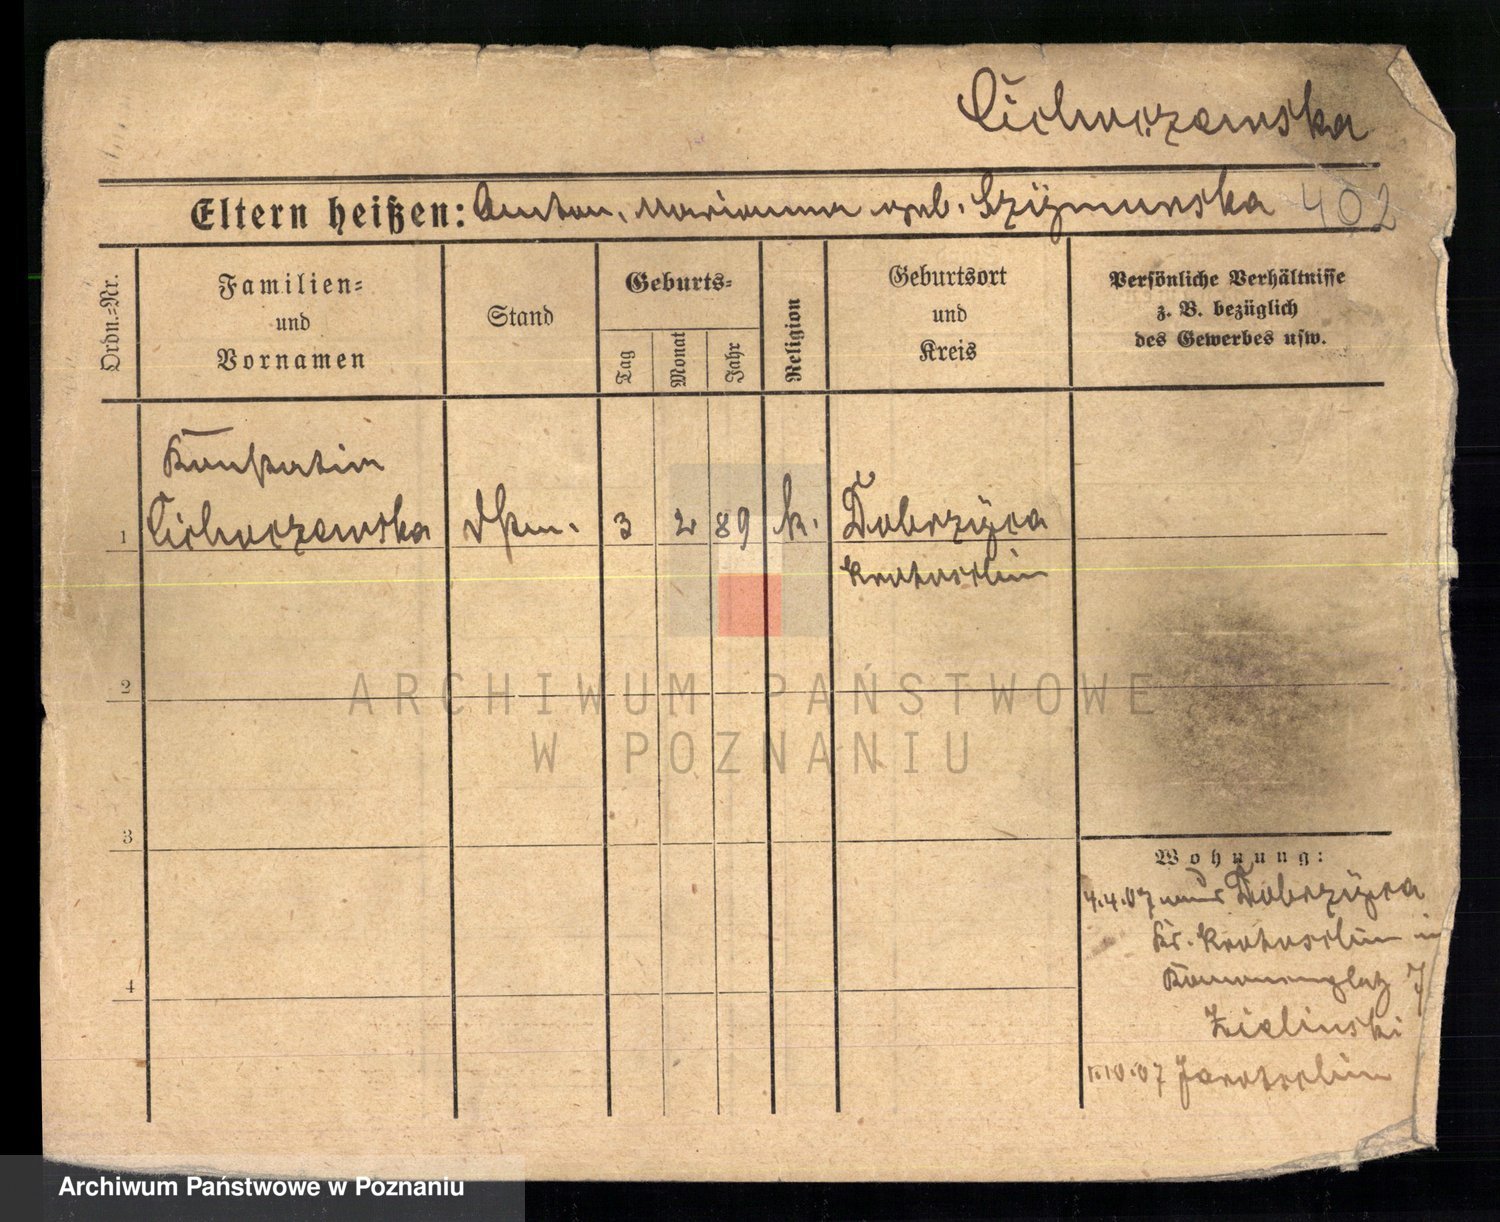 Cichoczewska
Eltern heißen: Anton, Marianna geb. Szÿmunska 402
Ordn.-Nr.
Familien-
und
Vornamen
Stand
Geburts-
Tag
Monat
Jahr
Religion
Geburtsort
und
Kreis
Persönliche Verhältnisse
z. B. bezüglich
des Gewerbes usw.
Konstantin
1 Cichoczewska Dstm. 3 2 89 k. Dobrzÿca
Krotoschin
2
ARCHIWUM PAŃSTWOWE
W POZNANIU
3
Wohnung:
4.4.07 aus Dobrzÿca
Kr. Krotoschin in
4
Zielinski
1.10.07 Jarotschin
Archiwum Państwowe w Poznaniu